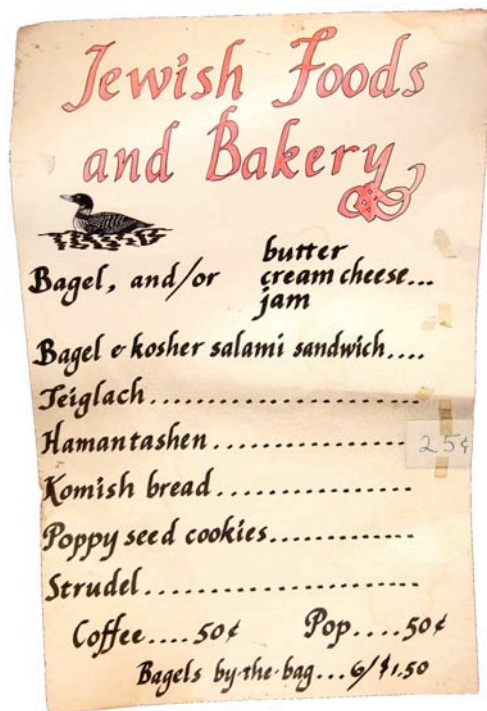 Jewish Foods
and Bakery
butter
Bagel, and/or cream cheese...
jam
Bagel & kosher salami sandwich....
Teiglach......................
Hamantashen................ 25¢
Komish bread................
Poppy seed cookies.............
Strudel.......................
Coffee....50¢ Pop....50¢
Bagels by-the-bag...6/$1.50